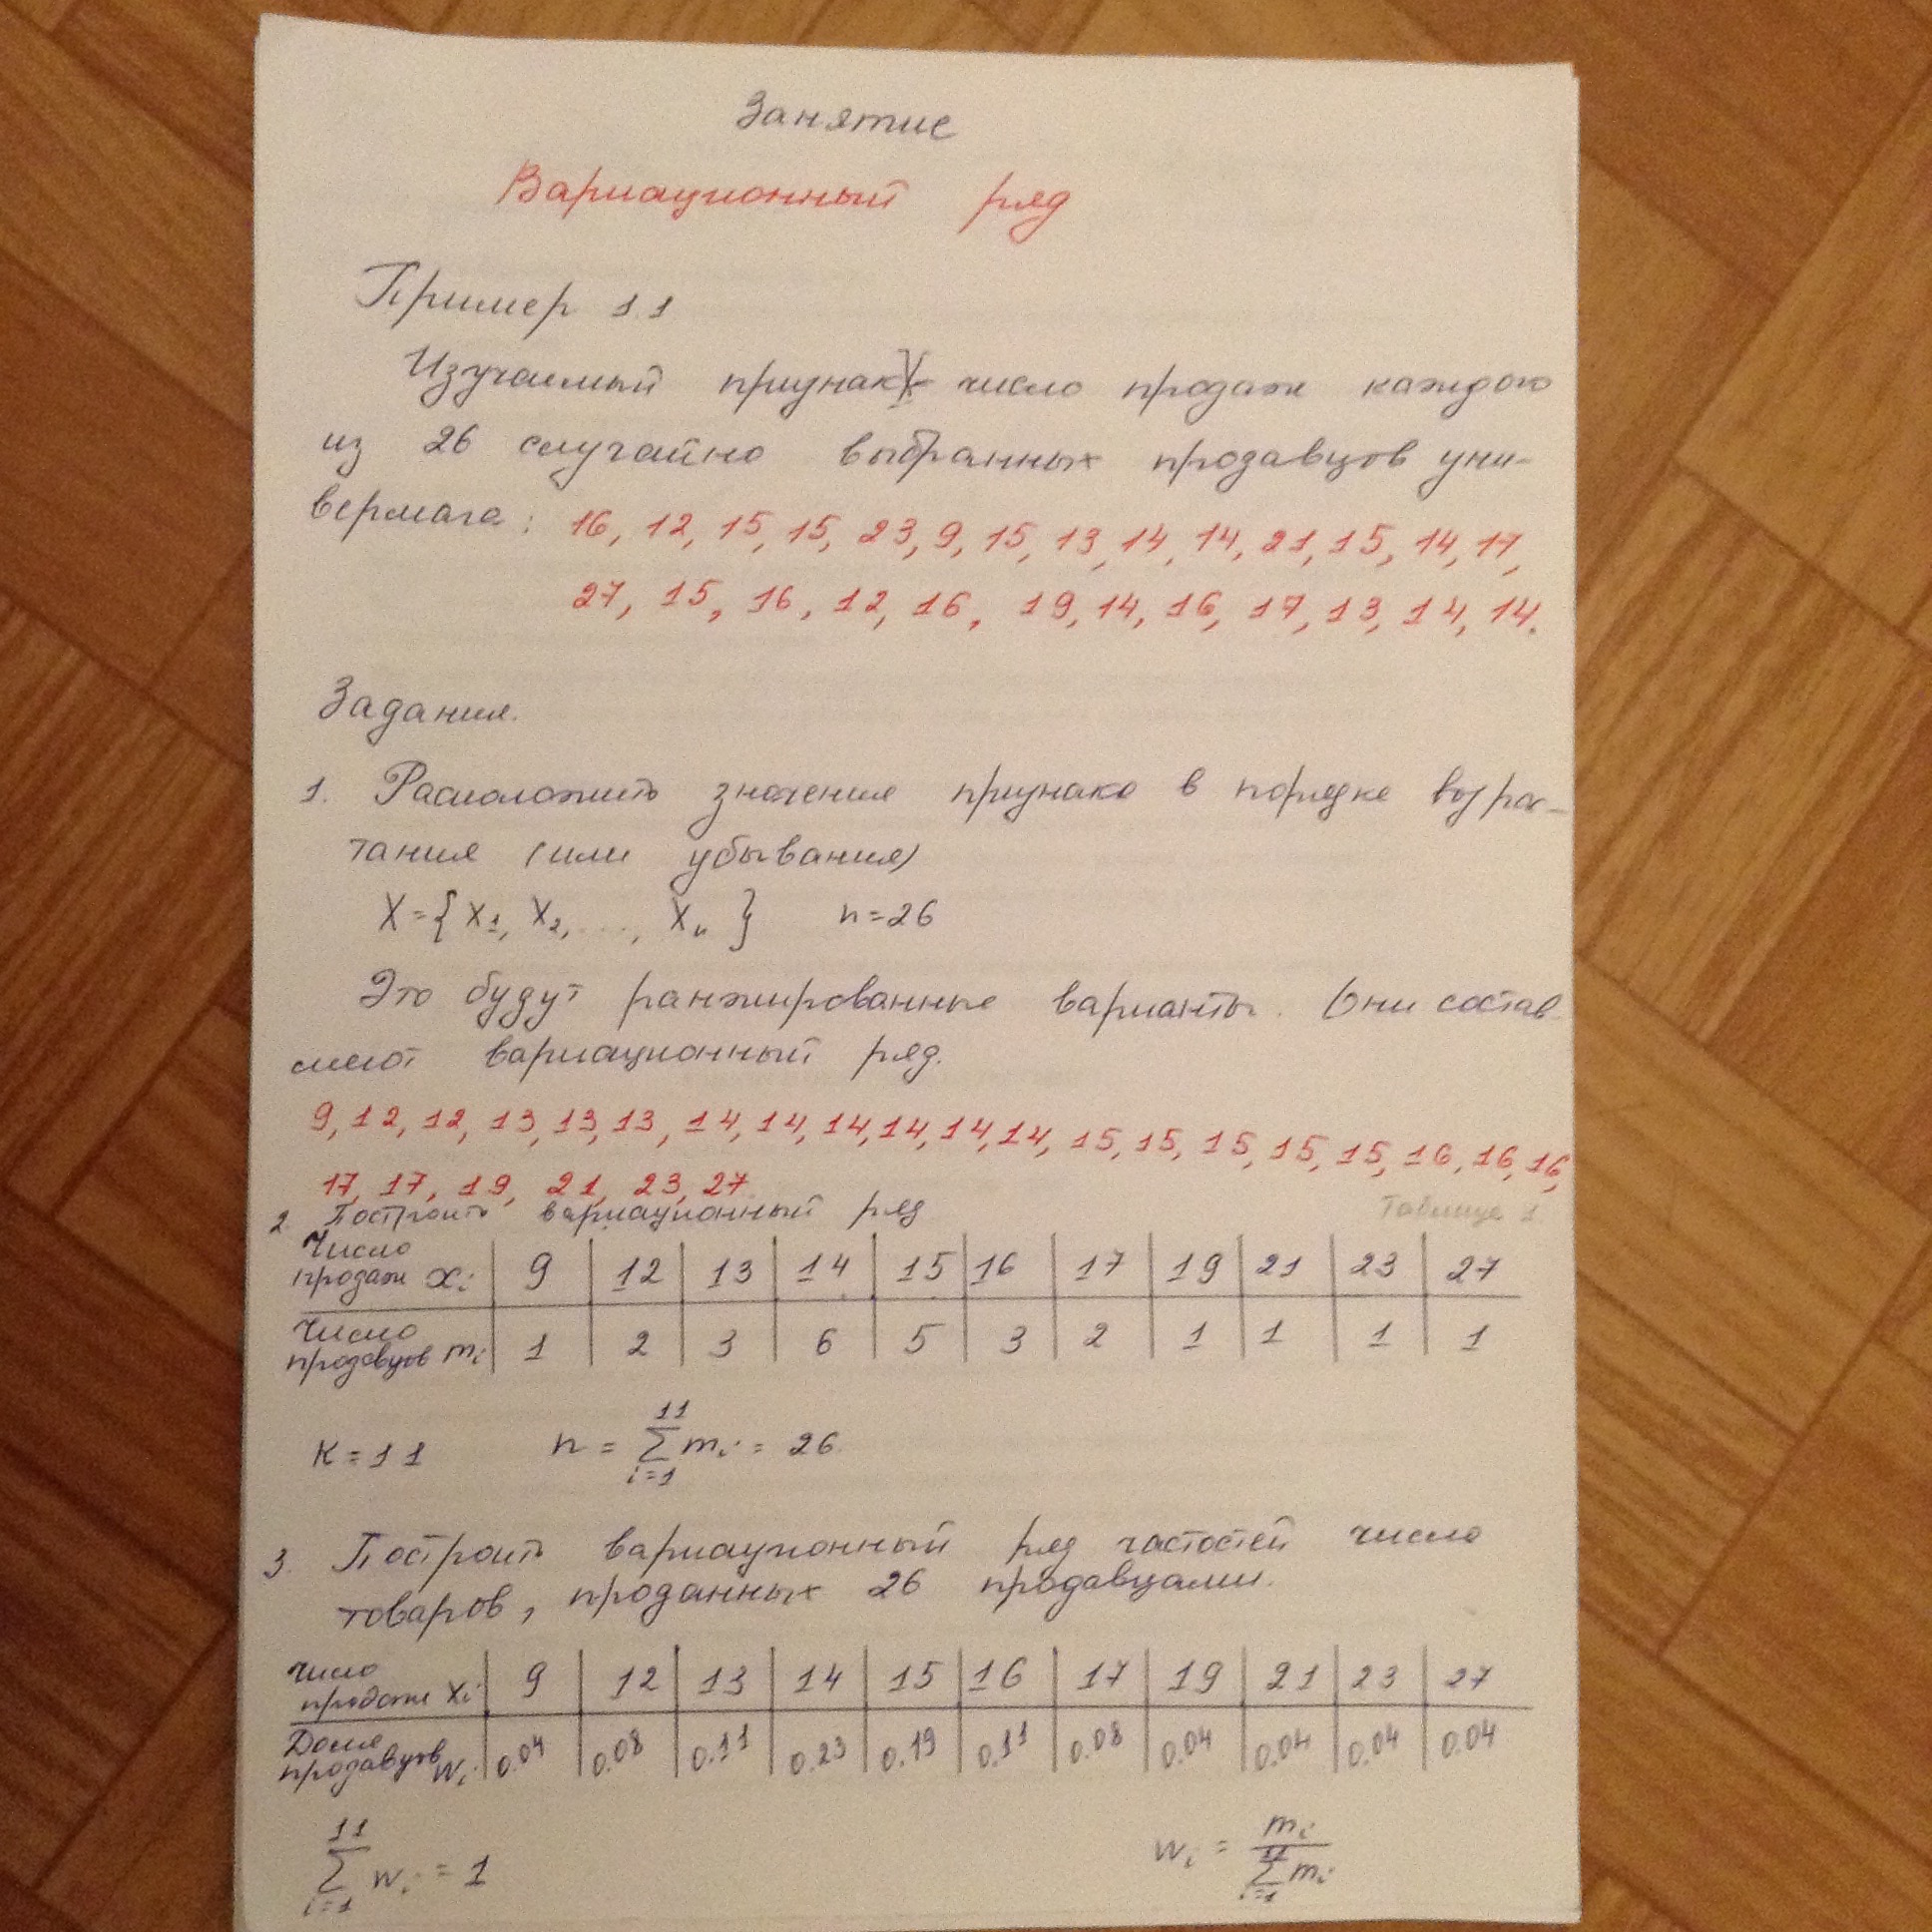 Занятие
Вариационный ряд
Пример 1.1
Изучаемый признак X число продаж каждого
из 26 случайно выбранных продавцов уни-
вермага: 16, 12, 15, 15, 23, 9, 15, 13, 14, 14, 21, 15, 14, 17,
27, 15, 16, 12, 16, 19, 14, 16, 17, 13, 14, 14.
Задания.
1. Расположить значение признака в порядке возрас-
тания (или убывания)
X={x1, x2, ..., xn} n=26
Это будут ранжированные варианты. (они состав
ляют вариационный ряд.
9, 12, 12, 13, 13, 13, 14, 14, 14, 14, 14, 14, 15, 15, 15, 15, 15, 16, 16, 16,
17, 17, 19, 21, 23, 27.
2. Построить вариационный ряд Таблица 1
Число
продаж xi 9 12 13 14 15 16 17 19 21 23 27
Число
продавцов mi 1 2 3 6 5 3 2 1 1 1 1
K=11 n = 11 Σ i=1 mi = 26
3. Построить вариационный ряд частостей числа
товаров, проданных 26 продавцами.
Число
продаж xi 9 12 13 14 15 16 17 19 21 23 27
Доля
продавцов wi 0.04 0.08 0.11 0.23 0.19 0.11 0.08 0.04 0.04 0.04 0.04
11 Σ i=1 wi = 1 wi = mi / 11 Σ i=1 mi